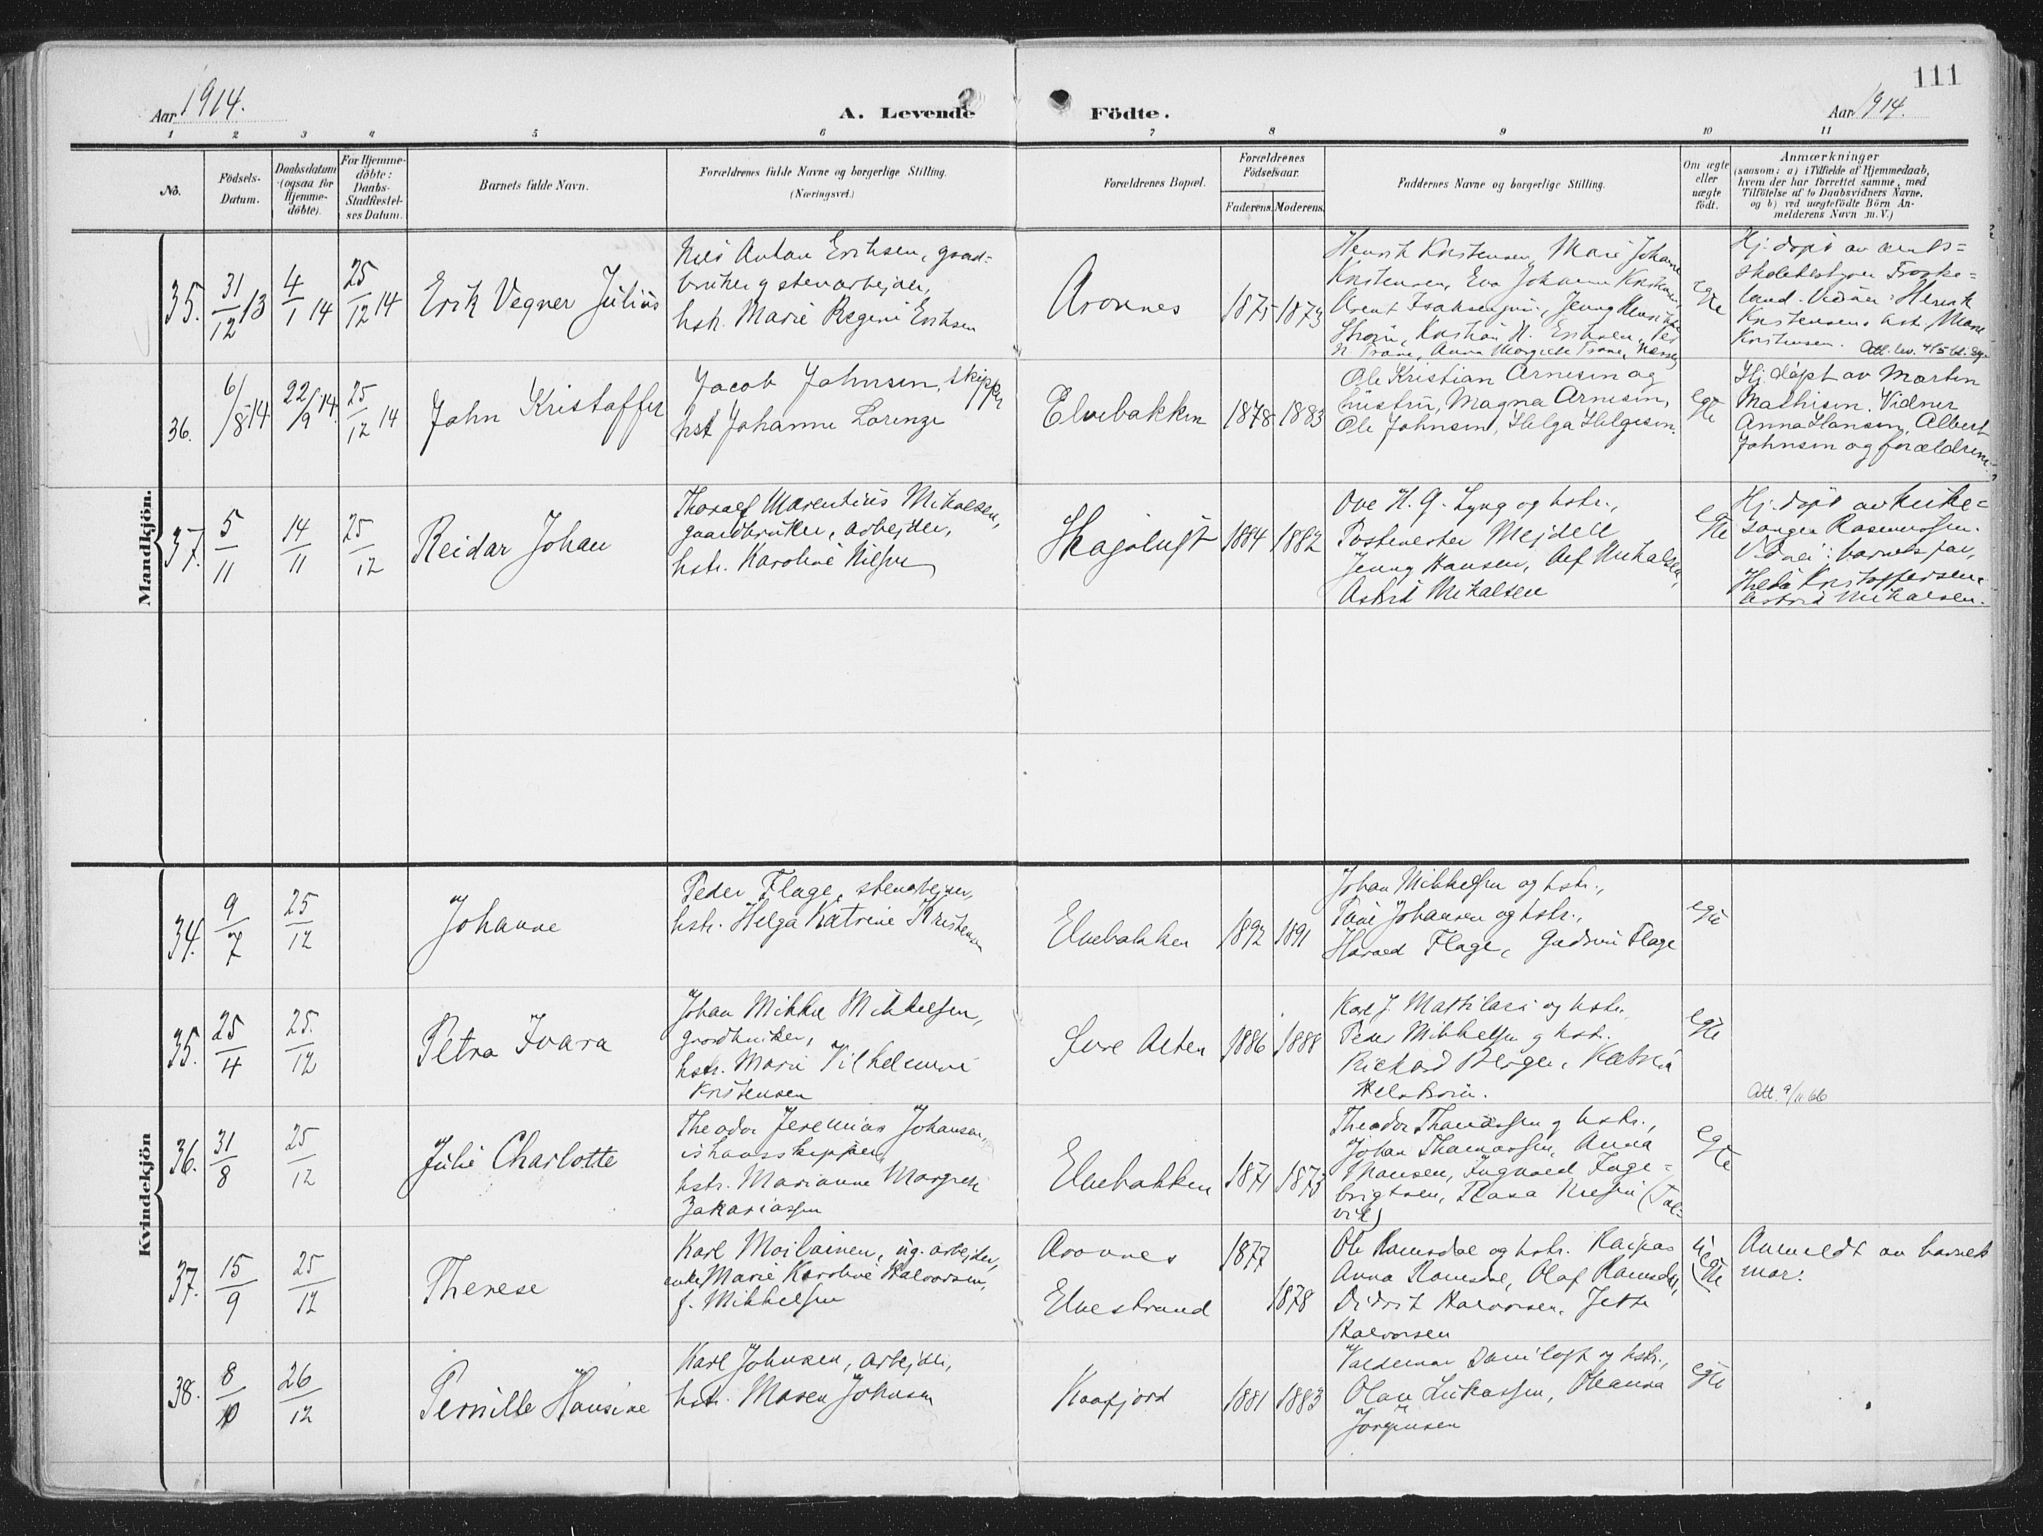 111
Aar 1914.
A. Levende Födte.
Aar 1914.
1 2 3 4 5 6 7 8 9 10 11
No.
Födsels-
Datum.
Daabsdatum
(ogsaa for
Hjemme-
döbte).
For Hjemme-
döbte:
Daabs-
Stadfæstel-
ses Datum.
Barnets fulde Navn.
Forældrenes fulde Navne og borgerlige Stilling.
(Næringsvei.)
Forældrenes Bopæl.
Forældrenes
Födselsaar.
Faderens. Moderens.
Faddernes Navne og borgerlige Stilling.
Om ægte
eller
uægte
födt.
Anmærkninger
(saasom: a) i Tilfælde af Hjemmedaab,
hvem der har forrettet samme, med
Tilföielse af to Daabsvidners Navne.
og b) ved uægtefödte Börn An-
melderens Navn m. V.)
Mandkjön.
35.
31/12 13
4/1 14
25/12 14
Erik Vegner Julius
Nils Anton Eriksen, gaard-
bruker og stenarbejder,
hstr. Marie Regine Eriksen
Aronnes
1875 1873
Henrik Kristensen, Marie Johanne
Kristensen, Eva Johanne Kristensen,
egte
Hj. döpt av amts-
skolebestyrer
land. Vidner: Henrik
Kristensen, hstr. Marie
Kristensen.
36.
6/8 14
22/9 14.
25/12 14
John Kristoffer
Jacob Johnsen, skipper
hst Johanne Lorenze
Elvebakken
1878 1883
Ole Kristian Arnesen og
hustru, Magna Arnesen,
Ole Johnsen, Helga Helgesen.
egte
Hj. döpt av Morten
Mathisen. Vidner
Anna Hansen, Albert
Johnsen og forældrene.
37.
5/11
14/11
25/12
Reidar Johan
Thoralf Marentius Mikalsen,
gaardbruker, arbejder,
hstr. Karoline Nilsen
Skogsluft
1884 1882
Ove H. G. Lyng og hstr.,
Postmester Mejdell
Jenny Hansen, Alf Mikalsen,
Astrid Mikalsen
egte
Hj. döpt av kirke-
sanger
Vidner: barnets far,
Hilda Kristoffersen.
Astrid Mikalsen.
Kvindekjön
34.
9/7
25/12
Johanne
Peder Flage, stenarbejder,
hstr. Helga Katrine Kristensen
Elvebakken
1892 1891
Johan Mikkelsen og hstr.,
Johansen og hstr.,
Harald Flage, Gudrun Flage
egte
35.
25/4
25./12
Petra Ivara
Johan Mikkel Mikkelsen,
gaardbruker,
hstr. Marie Vilhelmine
Kristensen
Övre Alten
1886 1888
Karl J. Mattilasi og hstr.
Peder Mikkelsen og hstr.
Rickard Berger, Katrine
egte
Att. 9/11 66
36.
31/8
25/12
Julie Charlotte
Theodor Jeremias Johansen,
ishavsskipper,
hstr. Marianne Margrete
Zakariassen
Elvebakken
1871 1873
Theodor Thomassen og hstr.,
Johan Thomassen, Anna
Hansen, Ingvald Inge-
brigtsen, Rasa Nilsen (Tal-
vik)
egte
37.
15/9
25/12
Therese
Karl Moilainen, ug. arbejder,
enke Marie Karoline Halvorsen,
f. Mikkelsen
Aronnes
Elvestrand
1877
1878
Ole Ramsdal og hstr. Kaisas
Anna Ramsdal, Olaf Ramsdal,
Didrik Halvorsen, Jette
Halvorsen
uegte
Anmeldt av barnets
mor.
38.
8/10
26/12
Pernille Hansine
Karl Johnsen, arbejder,
hstr. Maren Johnsen
Kaafjord
1881 1883
Valdemar Daniloft og hstr.,
Olav Lukassen, Oleanna
Jörgensen
egte